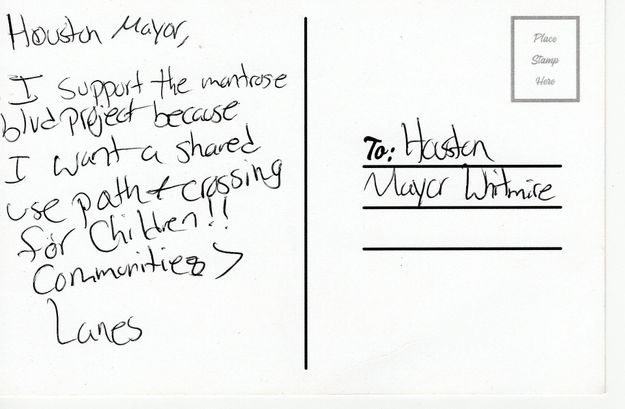 Houston Mayor,
I support the montrose
blvd project because
I want a shared
use path + crossing
for Children!!
Communities >
Lanes
Place
Stamp
Here
To: Houston
Mayor Whitmire